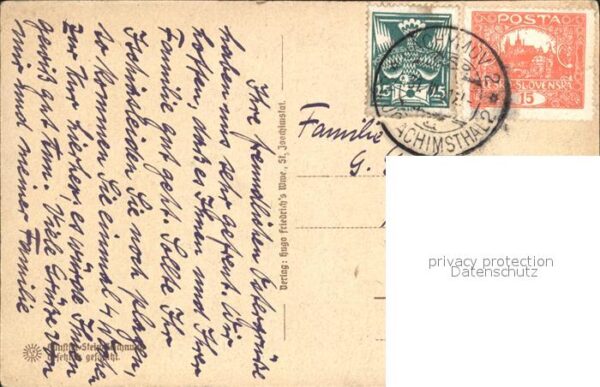 Ihre freundlichen Ostergrüße
haben uns sehr gefreut. Wir
hoffen, daß es Ihnen und Ihrer
Familie gut geht. Sollte Ihr
Ischiasleiden Sie noch plagen,
so kommen Sie einmal 4 Wochen
zur Kur hierher, es würde Ihnen
gewiß gut tun. Viele Grüße von
mir und meiner Familie
Verlag: Hugo Friedrich's Wwe., St. Joachimsthal.
Familie
G.
25
POSTA
SLOVENSKÁ
15
JÁCHYMOV 2
JOACHIMSTHAL 2
gesetzl. geschützt.
privacy protection
Datenschutz